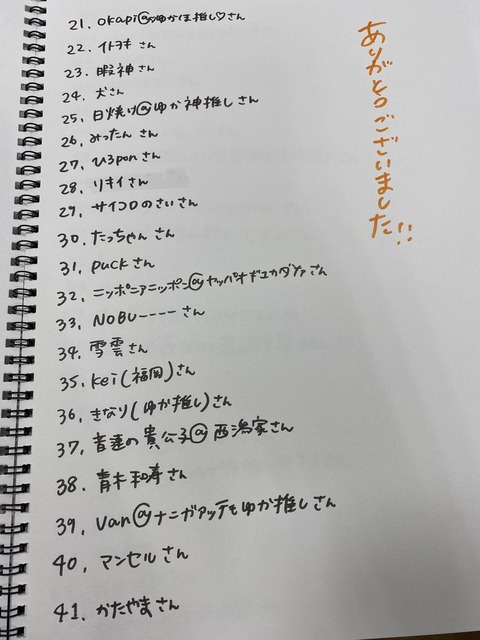 21. Okapi@ゆかほ推し♡さん
22. イトヲキ さん
23. 暇神 さん
24. 犬さん
25. 日焼け@ゆか神推しさん
26. みったん さん
27. ひろpon さん
28. リキイ さん
29. サイコロのさい さん
30. たっちゃん さん
31. puck さん
32. ニッポニアニッポン@ヤッパオギユカダァァ さん
33. NOBUーーーー さん
34. 雪雲 さん
35. kei(福岡)さん
36. きなり(ゆか推し)さん
37. 音速の貴公子@西潟家さん
38. 青木和寿 さん
39. Van@ナニガアッテもゆか推し さん
40. マンセル さん
41. かたやま さん
ありがとうございました!!